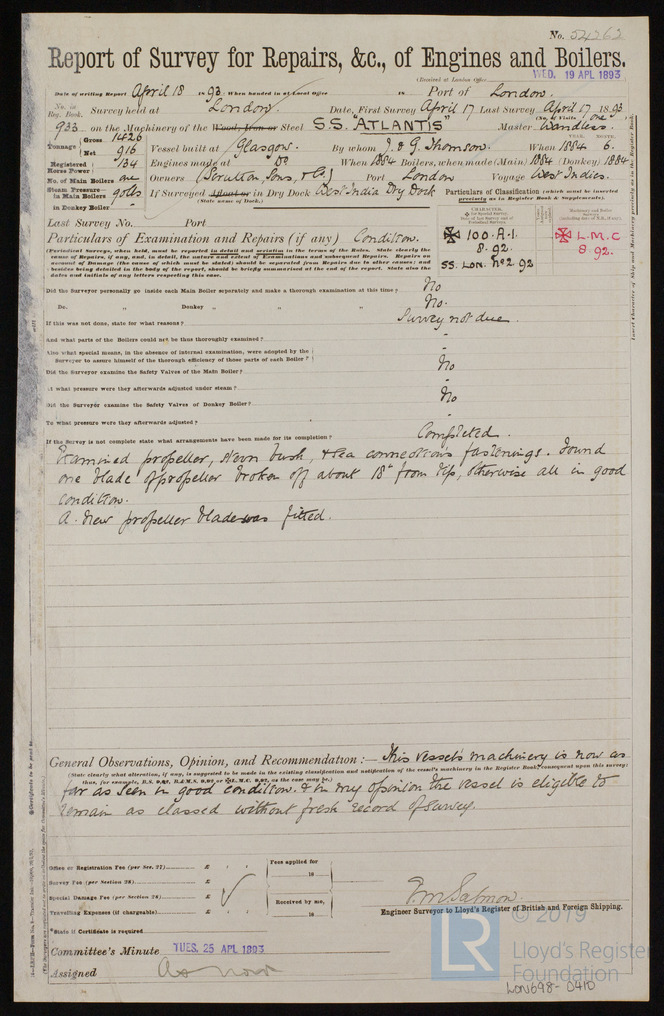 No. 54262
Report of Survey for Repairs, &c., of Engines and Boilers.
(Received at London Office WED. 19 APL 1893
Date of writing Report April 18 1893 When handed in at Local Office 18 Port of London.
No. in Reg. Book. Survey held at London Date, First Survey April 17 Last Survey April 17 1893
(No. of Visits one)
933 on the Machinery of the Wood, Iron or Steel S.S. "ATLANTIS" Master
Tonnage Gross 1420 Net 916 Vessel built at Glasgow. By whom J. & G. Thomson. When 1884 6.
Registered Horse Power 134 Engines made at Do When 1884 Boilers, when made (Main) 1884 (Donkey) 1884
No. of Main Boilers one Owners (Scrutton, Sons, & Co.) Port London Voyage West Indies.
Steam Pressure in Main Boilers 90lbs If Surveyed Afloat or in Dry Dock West India Dry Dock
(State name of Dock.)
in Donkey Boiler -
Particulars of Classification (which must be inserted precisely as in Register Book & Supplements).
Last Survey No. Port
CHARACTER.
100.A.1.
8.92.
SS. LON. No2.92
L.M.C
8.92.
Particulars of Examination and Repairs (if any) Condition.
(Periodical Surveys, when held, must be reported in detail and seriatim in the terms of the Rules. State clearly the
cause of Repairs, if any, and, in detail, the nature and extent of Examinations and subsequent Repairs. Repairs on
account of Damage (the cause of which must be stated) should be separated from Repairs due to other causes; and
besides being detailed in the body of the report, should be briefly summarised at the end of the report. State also the
dates and initials of any letters respecting this case.
Did the Surveyor personally go inside each Main Boiler separately and make a thorough examination at this time? No
Do. " Donkey " " " No.
If this was not done, state for what reasons? Survey not due.
And what parts of the Boilers could not be thus thoroughly examined? -
Also what special means, in the absence of internal examination, were adopted by the
Surveyor to assure himself of the thorough efficiency of those parts of each Boiler? -
Did the Surveyor examine the Safety Valves of the Main Boiler? No
At what pressure were they afterwards adjusted under steam? -
Did the Surveyor examine the Safety Valves of Donkey Boiler? No
To what pressure were they afterwards adjusted? -
If the Survey is not complete state what arrangements have been made for its completion? Completed.
Examined propeller, stern bush, & sea connections fastenings. Found
one blade of propeller broken off about 18" from tip, otherwise all in good
condition.
A new propeller blade was fitted.
General Observations, Opinion, and Recommendation:— This vessel's machinery is now as
(State clearly what alteration, if any, is suggested to be made in the existing classification and notification of the vessel's machinery in the Register Book, consequent upon this survey;
far as seen in good condition. & in my opinion the vessel is eligible to
remain as classed without fresh record of Survey.
Office or Registration Fee (per Sec. 27) £
Survey Fee (per Section 28) £
Special Damage Fee (per Section 28) £
Travelling Expenses (if chargeable) £
Fees applied for
18
Received by me,
18
E.M. Salmon.
Engineer Surveyor to Lloyd's Register of British and Foreign Shipping.
*State if Certificate is required
Committee's Minute TUES. 25 APL 1893
Assigned As now
LR
© 2019
Lloyd's Register
Foundation
LON698-0410